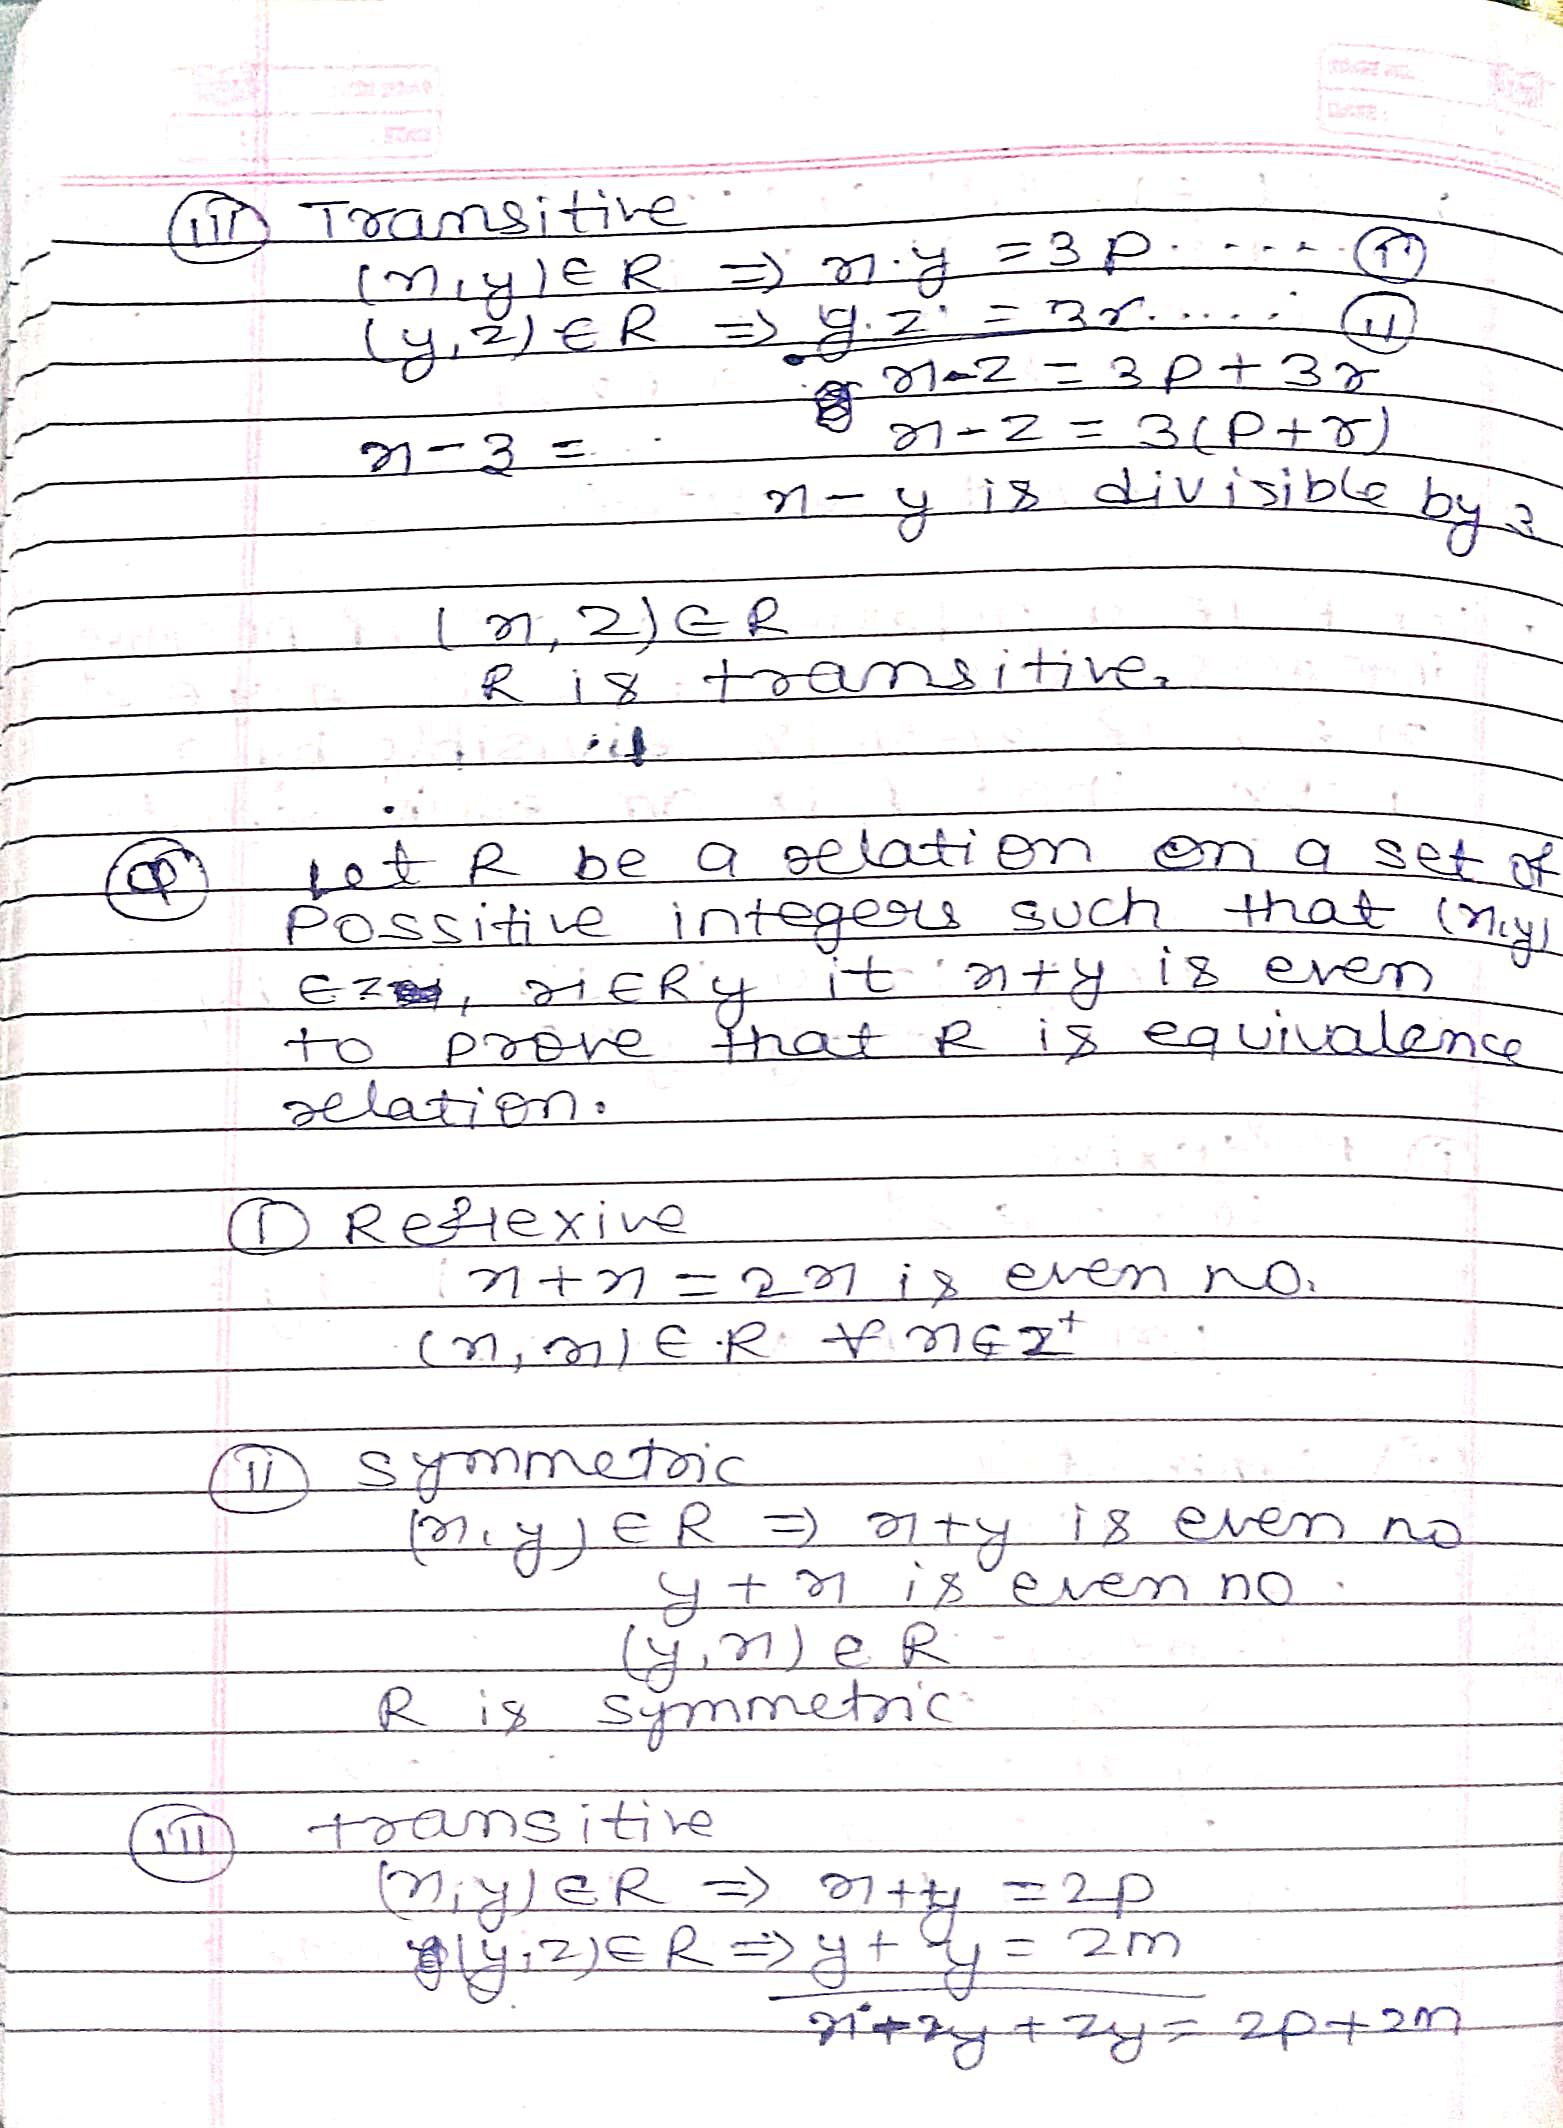 (iii) Transitive
(x,y) ∈ R ⇒ x-y = 3p ..... (i)
(y,z) ∈ R ⇒ y-z = 3r ..... (ii)
x-z = 3p + 3r
x-3 = x-z = 3(p+r)
x-y is divisible by 3
(x,z) ∈ R
R is transitive.
Q Let R be a relation on a set of
Possitive integers such that (x,y)
∈ z, x ∈ R y it x+y is even
to prove that R is equivalence
relation.
(i) Reflexive
x+x = 2x is even no.
(x,x) ∈ R ∀ x ∈ z⁺
(ii) symmetric
(x,y) ∈ R ⇒ x+y is even no
y+x is even no.
(y,x) ∈ R
R is symmetric
(iii) transitive
(x,y) ∈ R ⇒ x+y = 2p
(y,z) ∈ R ⇒ y+y = 2m
x+2y+2y = 2p+2m